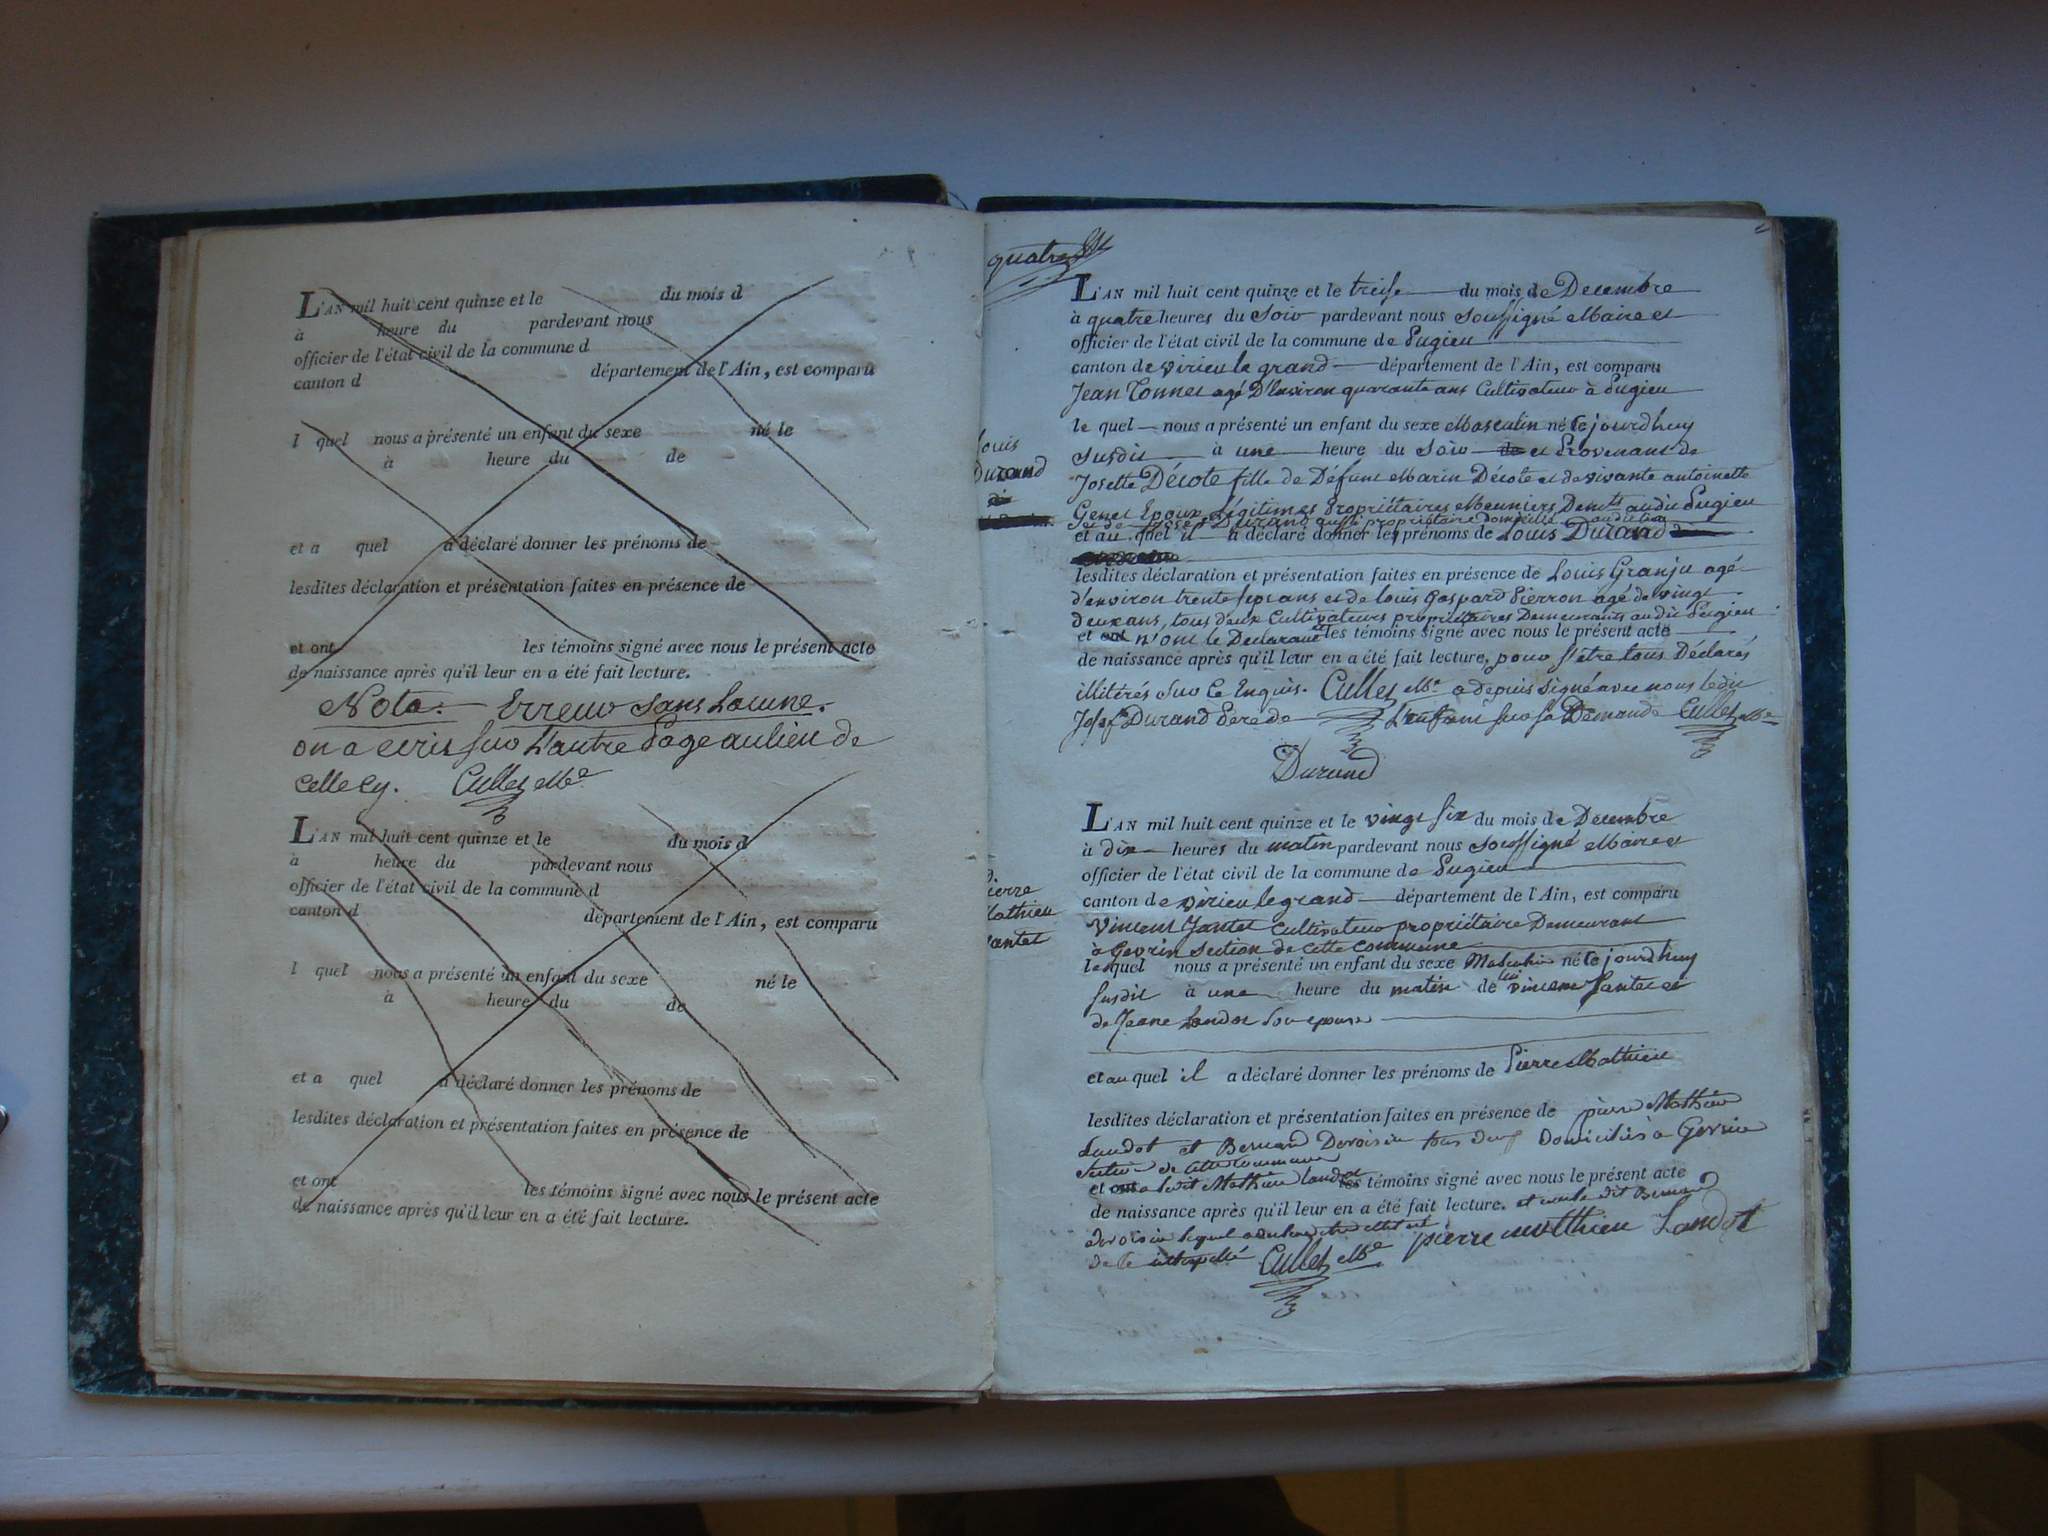 L'AN mil huit cent quinze et le du mois d
à heure du pardevant nous
officier de l'état civil de la commune d
canton d département de l'Ain, est comparu
l quel nous a présenté un enfant du sexe né le
à heure du de
et a quel a déclaré donner les prénoms de
lesdites déclaration et présentation faites en présence de
et ont les témoins signé avec nous le présent acte
de naissance après qu'il leur en a été fait lecture.
Nota. Erreur sans Lacune.
on a ecrit sur L'autre Page au lieu de
celle cy. Cullet M.e
L'AN mil huit cent quinze et le du mois d
à heure du pardevant nous
officier de l'état civil de la commune d
canton d département de l'Ain, est comparu
l quel nous a présenté un enfant du sexe né le
à heure du de
et a quel a déclaré donner les prénoms de
lesdites déclaration et présentation faites en présence de
et ont les témoins signé avec nous le présent acte
de naissance après qu'il leur en a été fait lecture.
quatre
L'AN mil huit cent quinze et le treise du mois de Decembre
à quatre heures du soir pardevant nous soussigné Maire et
officier de l'état civil de la commune de Pugieu
canton de virieu le grand département de l'Ain, est comparu
Jean Tonnet agé D'Environ quarante ans Cultivateur à Pugieu
le quel nous a présenté un enfant du sexe Masculin né Cejourdhuy
susdit à une heure du soir et Provenant de
Josette Décote fille de Défunt Marin Décote et de vivante antoinette
Genet Epoux Légitimes Propriétaires Meuniers Dem.ts audit Pugieu
et de Josef Durand aussi propriétaire domicilié audit lieu
et au quel il a déclaré donner les prénoms de Louis Durand
lesdites déclaration et présentation faites en présence de Louis Granju agé
d'environ trente sept ans et de louis Gaspard Pierron agé de vingt
deux ans, tous deux Cultivateurs propriétaires Demeurants audit Pugieu
et ont n'ont le Déclarant les témoins signé avec nous le présent acte
de naissance après qu'il leur en a été fait lecture, pour s'être tous Déclarés
illitérés sur ce Enquis. Cullet M.e a depuis signé avec nous ledit
Josef Durand Père de L'enfant sur sa Demande Cullet M.e
Durand
Louis
Durand
dit
L'AN mil huit cent quinze et le vingt six du mois de Décembre
à dix heures du matin pardevant nous soussigné Maire et
officier de l'état civil de la commune de Pugieu
canton de virieu le grand département de l'Ain, est comparu
Vincent Jantet Cultivateur propriétaire Demeurant
à Gevrin section de cette commune
lequel nous a présenté un enfant du sexe Masculin né Cejourdhuy
susdit à une heure du matin de lui vincent Jantet et
de Jeane Landot son epouse
et au quel il a déclaré donner les prénoms de Pierre Mathieu
lesdites déclaration et présentation faites en présence de pierre Mathieu
Landot et Bernard Devoisin tous deux Domiciliés à Gevrin
section de cette commune
et ont a ledit Mathieu landot les témoins signé avec nous le présent acte
de naissance après qu'il leur en a été fait lecture. et non le dit Bernard
devoisin lequel a declaré
de ce interpellé Cullet M.e pierre matthieu Landot
Pierre
Mathieu
Jantet